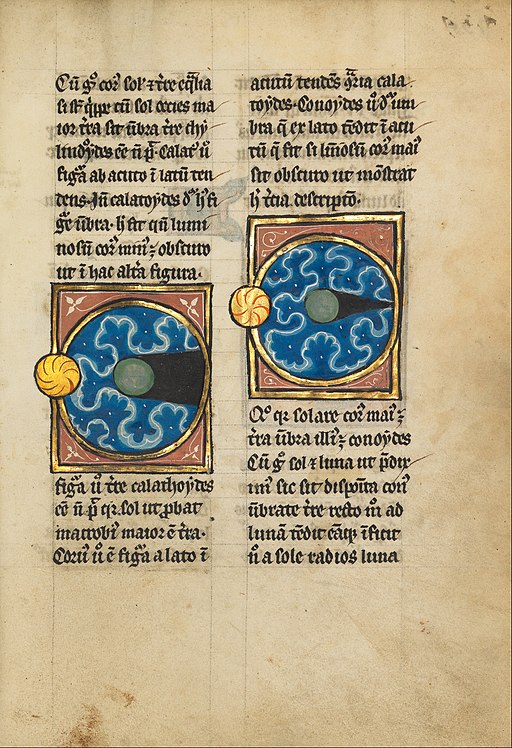 Cū gͦ corꝰ sol' ⁊ tr̄e eq̄lia
si st̄ q̄ppe cū sol octies ma
ior tr̄a sit ūbra tr̄e chy
lindroydes eē n̄ p̄. Calat' ū
figͣa ab acuto ī latū ten
dens. Jn̄ calatoydes dr̄ h' fi
gͣe ūbra. h' fit qn̄ lumi
nosū corꝰ minꝰ ē obscuro
ut ī hac alt'a figura.
figͣa ū tr̄e calathoydes
eē n̄ p̄ qr sol ut ꝓbat
macrobiꝰ maior ē tr̄a.
Conū ū ē figͣa a lato ī
acutū tendēs cala
toydes. Conoydes ū dr̄ um
bra q̄ ex lato tēdit ī acu
tū q̄ fit si lūnosū corꝰ maiꝰ
sit obscuro ut mōstrat
h' t'cia descriptō.
qr solare corꝰ maiꝰ ē
tr̄a ūbra illiꝰ ē conoydes
Cū gͦ sol ⁊ luna ut p̄dix
imꝰ sic sit disposita conꝰ
ūbrate tr̄e recto ad
lunā tēdit eāqꝫ īficit
n̄ a sole radios luna